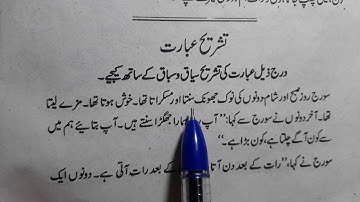 تشریح عبارت
درج ذیل عبارت کی تشریح سیاق و سباق کے ساتھ کیجیے۔
سورج روز صبح اور شام دونوں کی نوک جھونک سنتا اور مسکراتا تھا۔ خوش ہوتا تھا۔ مزے لیتا
تھا۔ آخر دونوں نے سورج سے کہا: ”آپ ہمارا جھگڑا سنتے ہیں۔ آپ بتائیے ہم میں
سے کون آگے چلتا ہے، کون بڑا ہے۔“
سورج نے کہا، ”رات کے بعد دن آتا کے بعد رات آتی ہے۔ دونوں ایک